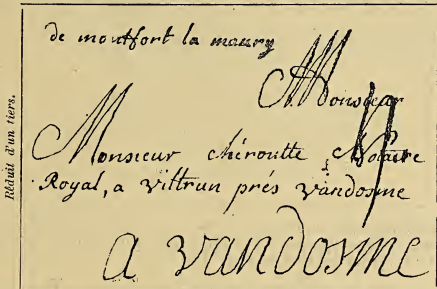 Réduit d'un tiers.
de montfort la maury
Monsieur
Monsieur chéroutte Notaire
Royal, a Villrun prés vandosme
a vandosme